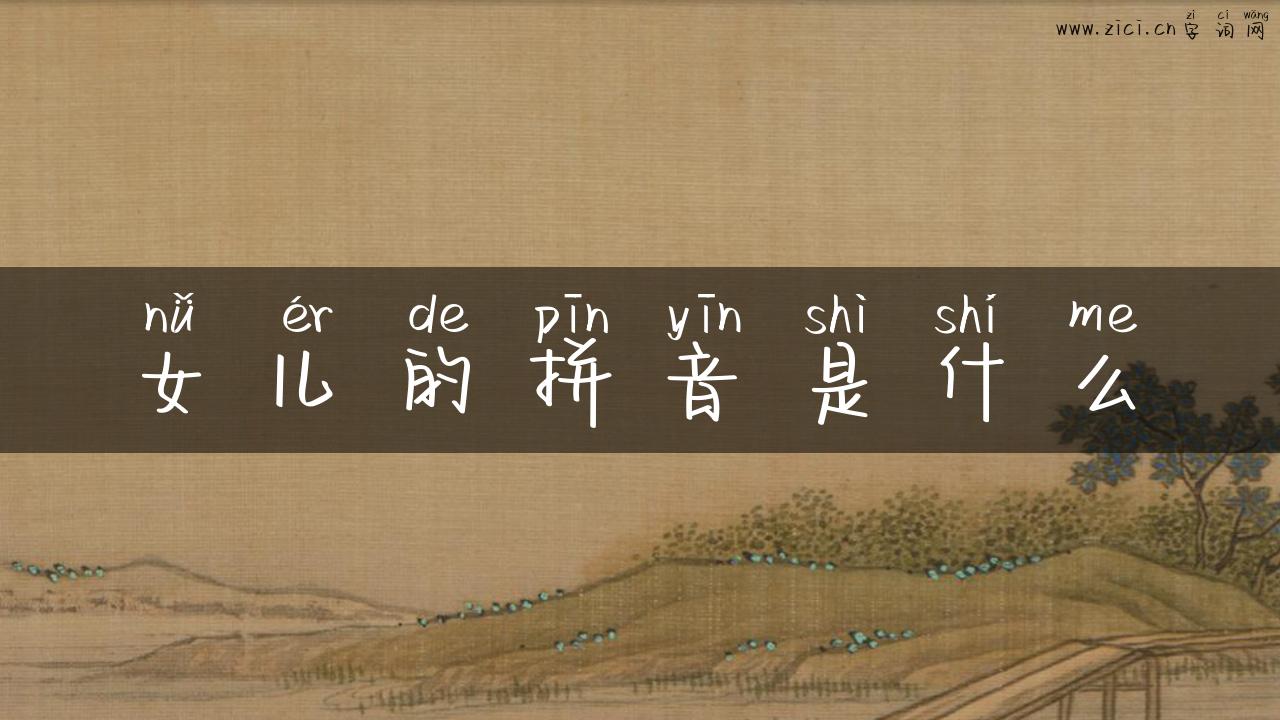 zì cí wǎng
www.zici.cn字词网
nǚ ér de pīn yīn shì shí me
女儿的拼音是什么